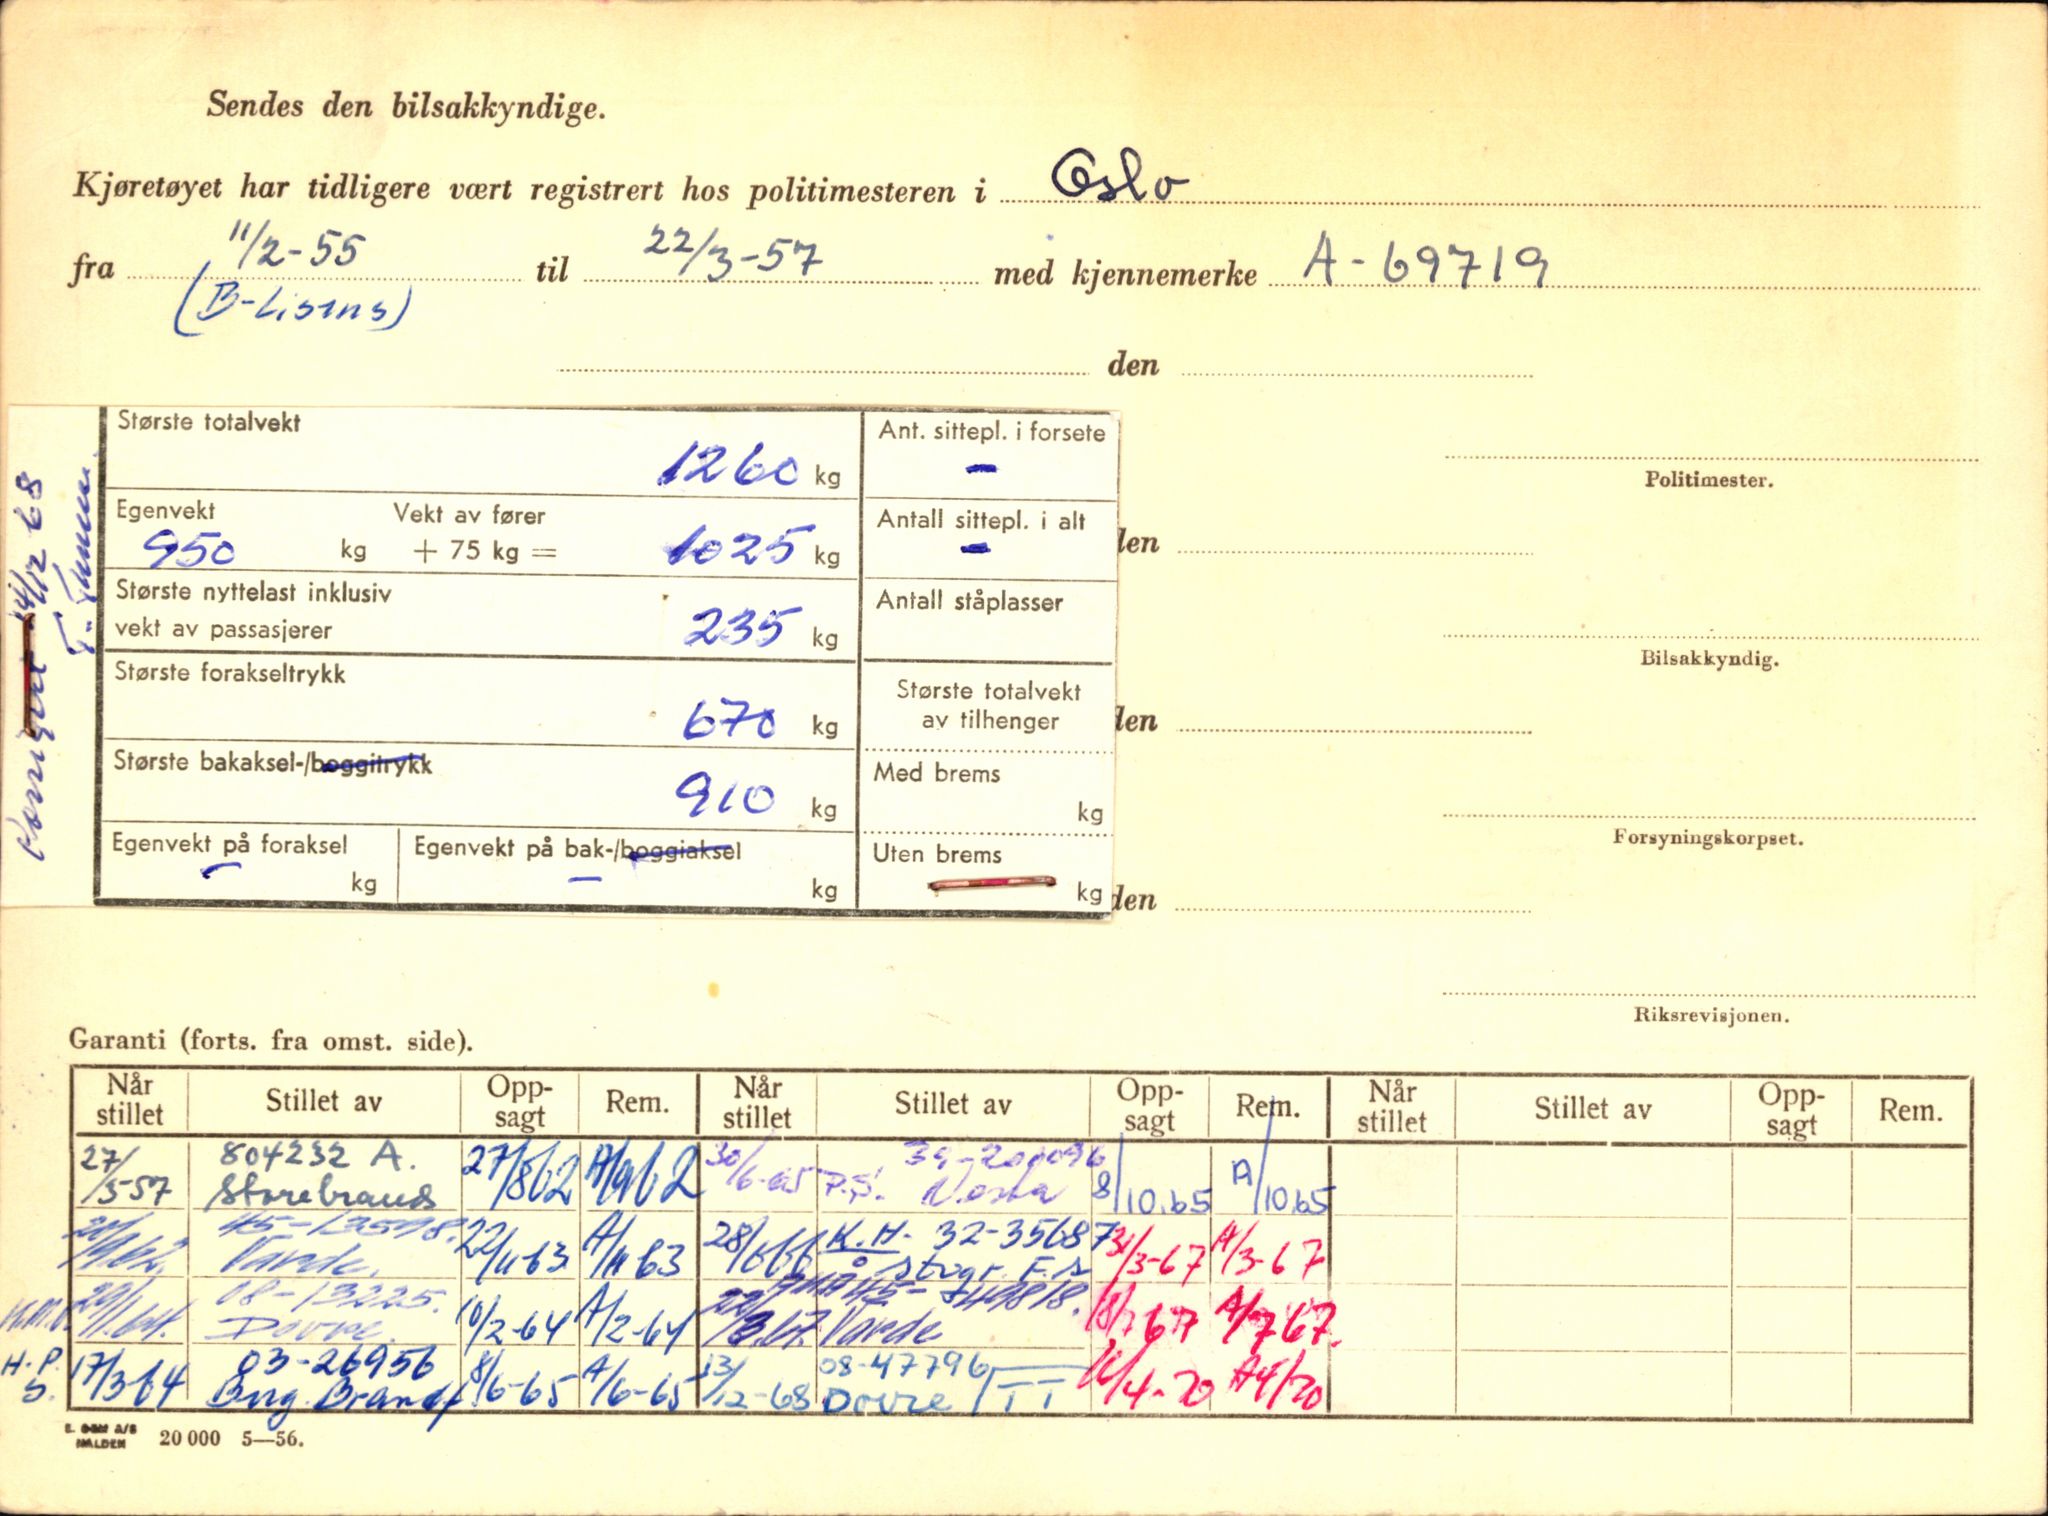 Sendes den bilsakkyndige.
Kjøretøyet har tidligere vært registrert hos politimesteren i Oslo
fra 11/2-55 til 22/3-57 med kjennemerke A-69719
(B-Lisens)
den
Største totalvekt 1260 kg
Ant. sittepl. i forsete –
Politimester.
Egenvekt 950 kg Vekt av fører + 75 kg = 1025 kg
Antall sittepl. i alt –
den
Største nyttelast inklusiv vekt av passasjerer 235 kg
Antall ståplasser
Bilsakkyndig.
Største forakseltrykk 670 kg
Største totalvekt av tilhenger
den
Største bakaksel-/boggitrykk 910 kg
Med brems kg
Forsyningskorpset.
Egenvekt på foraksel – kg
Egenvekt på bak-/boggiaksel – kg
Uten brems kg
den
14/12 68
Riksrevisjonen.
Garanti (forts. fra omst. side).
Når stillet Stillet av Oppsagt Rem. Når stillet Stillet av Oppsagt Rem. Når stillet Stillet av Oppsagt Rem.
27/5-57 804232 A. Storebrand 27/862 A/962 30/6-65 P.S. 8/10.65 A/10.65
Varde. 22/11 63 A/11 63 28/666 K.H. 32-35687 Stvgr. F.s 31/3-67 A/3-67
08-13225. Dovre. 10/2-64 A/2-64 Varde 18/7 67 A/7 67.
H.P.S. 17/3 64 03-26956 Brg. Brandf 8/6-65 A/6-65 13/12-68 08-47796 Dovre TT 16/4-70 A4/70
HALDEN 20 000 5—56.